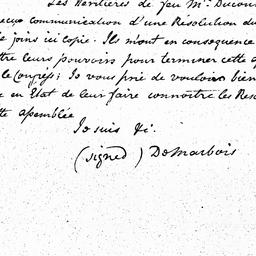 Les Heritieres de feu Mr. Ducou
communication d'une Resolution du
joins ici copie. Ils m'ont en consequence
leurs pouvoirs pour terminer cette a
le Congrés; Je vous prie de vouloir bien
en Etat de leur faire connoitre les Res
te assemblée
Je suis &c.
(signed) DeMarbois